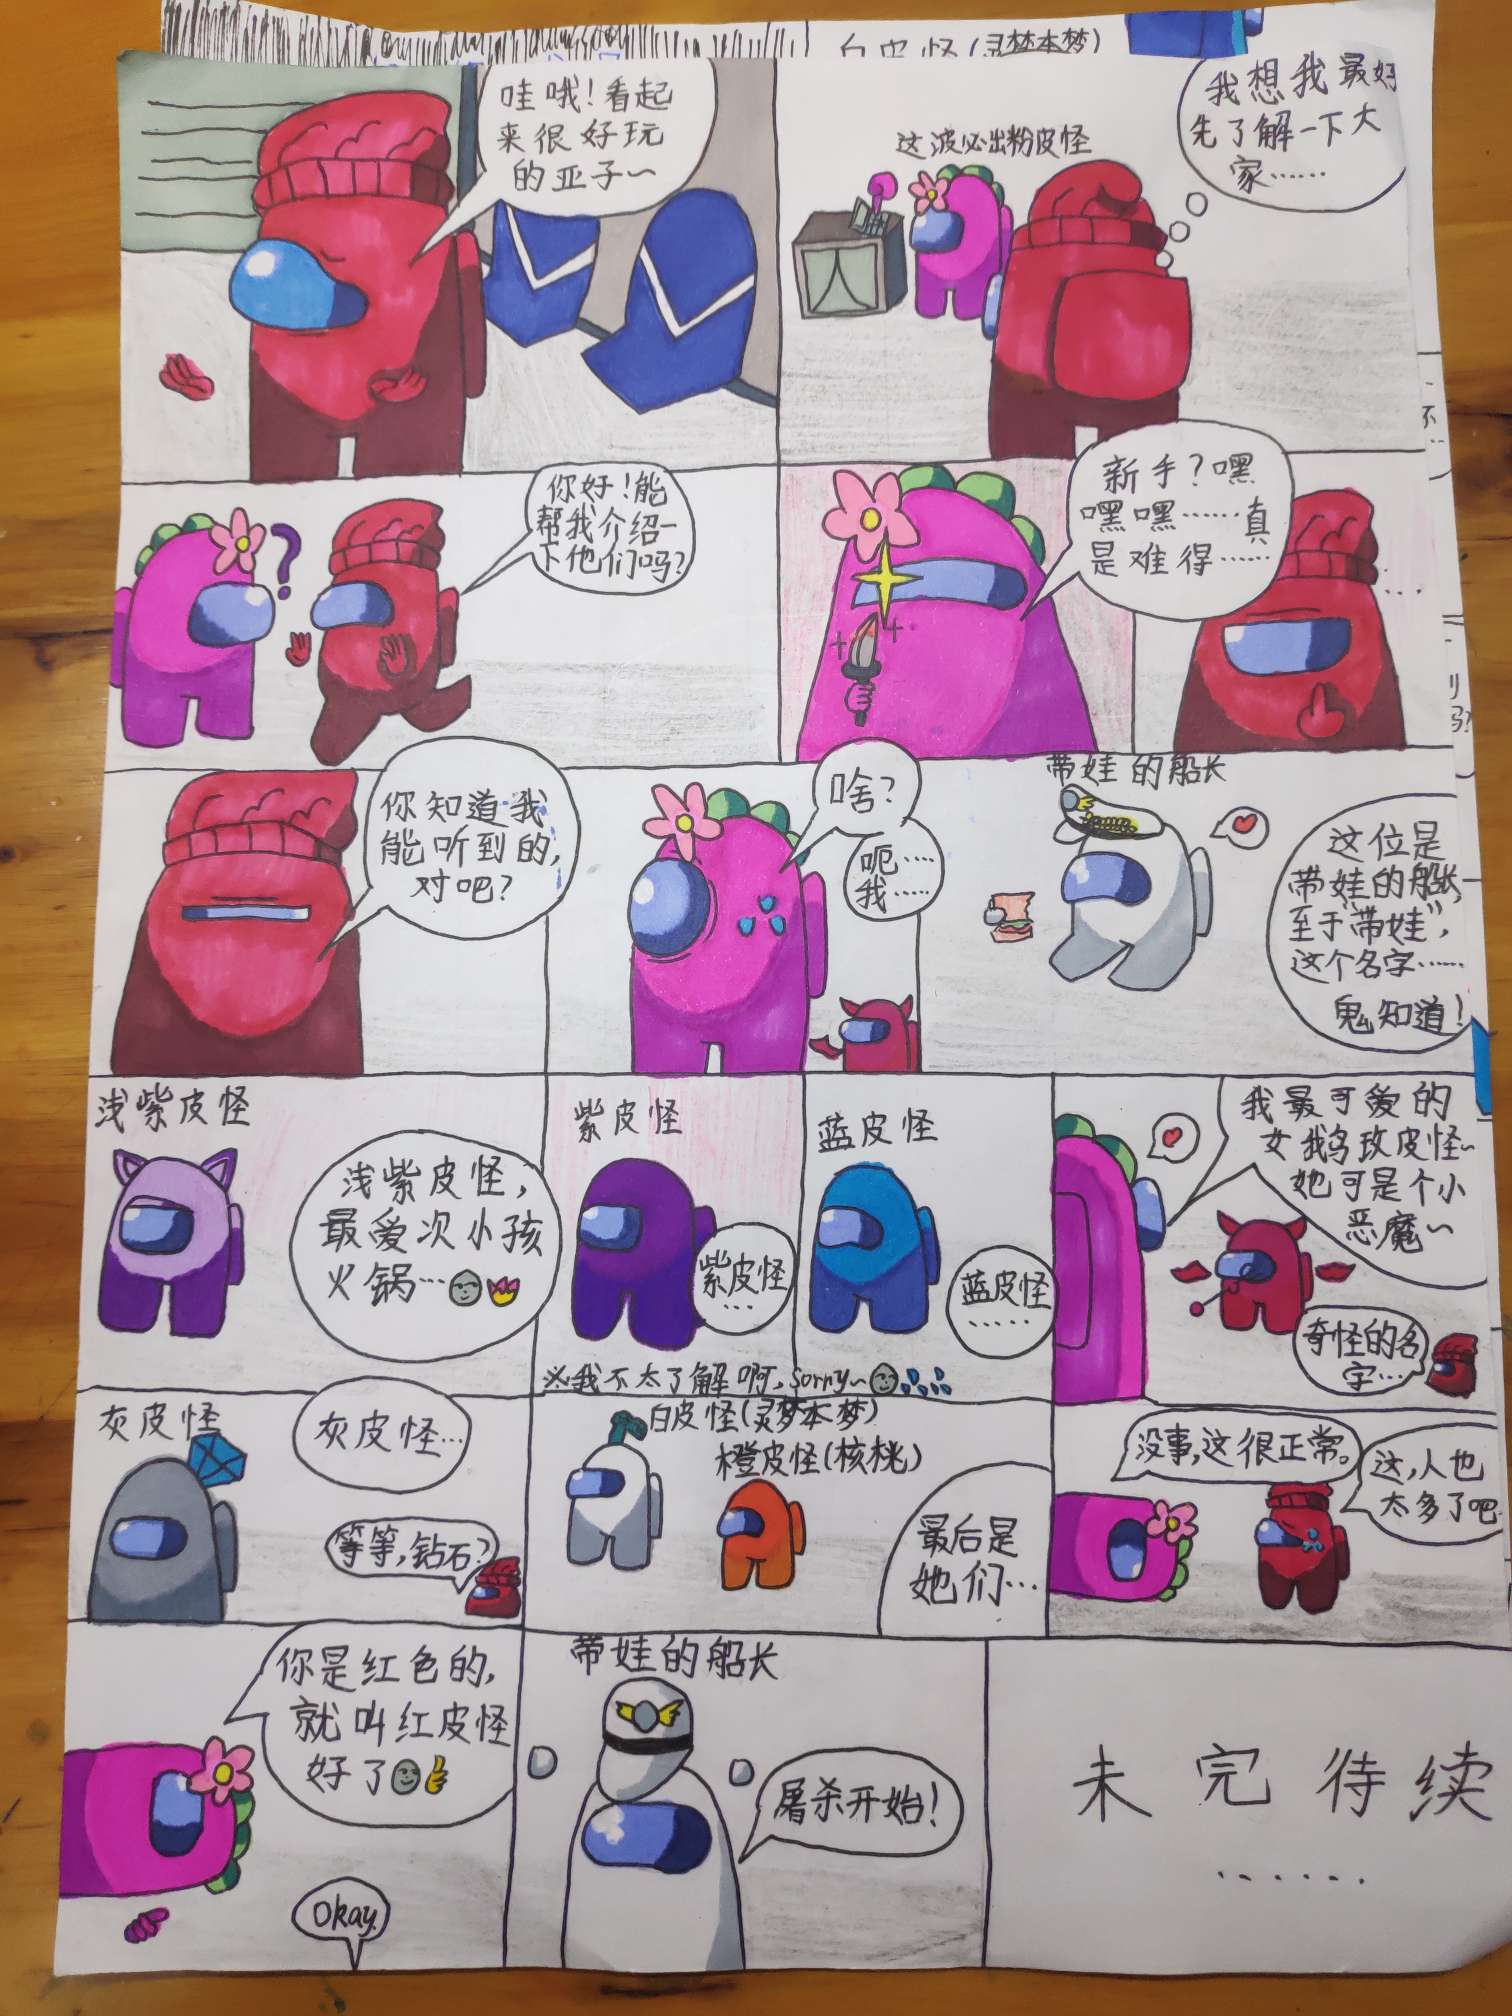 白皮怪(灵梦本梦)
哇哦!看起
来很好玩
的亚子~
这波必出粉皮怪
我想我最好
先了解一下大
家……
你好!能
帮我介绍一
下他们吗?
?
新手?嘿
嘿嘿……真
是难得……
……
你知道我
能听到的,
对吧?
啥?
呃……
我……
带娃的船长
这位是
带娃的船长,
至于“带娃”,
这个名字……
鬼知道!
浅紫皮怪
浅紫皮怪,
最爱次小孩
火锅…
紫皮怪
紫皮怪
…
蓝皮怪
蓝皮怪
……
※我不太了解啊,Sorry~
我最可爱的
女鹅玫皮怪~
她可是个小
恶魔~
奇怪的名
字…
灰皮怪
灰皮怪…
等等,钻石?
白皮怪(灵梦本梦)
橙皮怪(核桃)
最后是
她们…
没事,这很正常。
这,人也
太多了吧
你是红色的,
就叫红皮怪
好了
Okay.
带娃的船长
屠杀开始!
未完待续
……